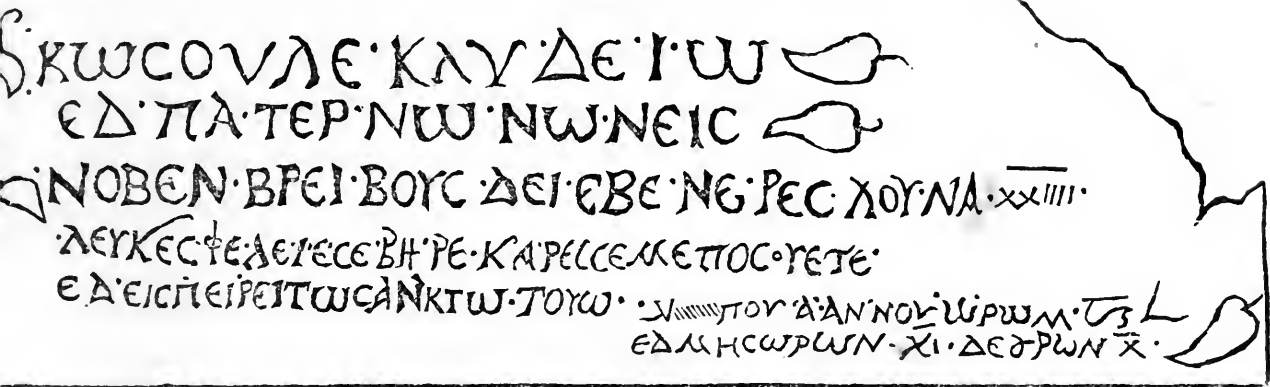 ΚωϹΟΥΛΕ·ΚΛΥ·ΔΕ·Ι·ω
ΕΔ·ΠΑ·ΤΕΡ·Νω·Νω·ΝΕΙϹ
ΝΟΒΕΝ·ΒΡΕΙ·ΒΟΥϹ·ΔΕΙ·ΕΒΕ·ΝΕ·ΡΕϹ·ΛΟΥ·ΝΑ·XXIIII·
·ΛΕΥΚΕϹ·ΦΕ·ΛΕΙ·Ε·ϹΕ·ΒΗ·ΡΕ·ΚΑ·ΡΕϹϹΕΜΕΠΟϹ·ΥΕΤΕ·
ΕΔ·ΕΙϹΠΕΙΡΕΙΤωϹΑΝΚΤω·ΤΟΥω·
ΠΟΥ·Α·ΑΝ·ΝΟΥωΡωΜ·
ΕΔΜΗϹωΡωΝ·X̅Ι·ΔΕΥΡωΝ X̅·